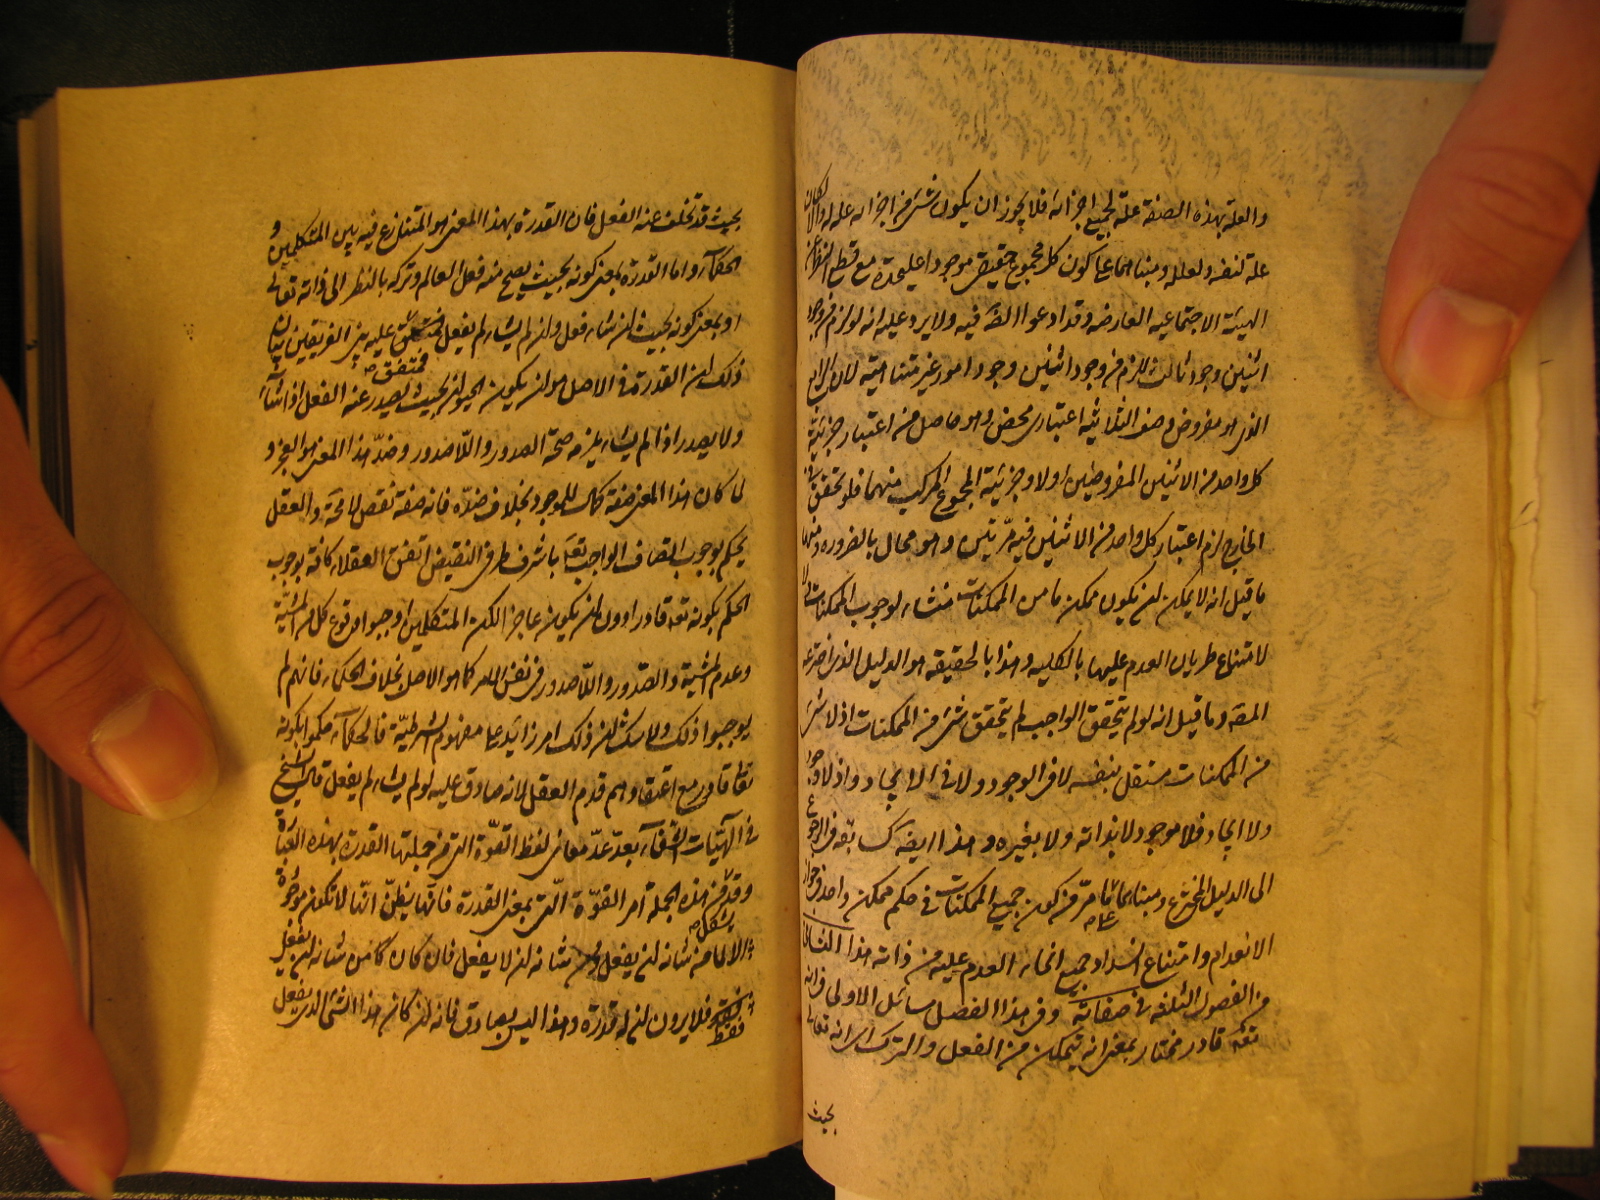 والعلة بهذه الصفة علة لجميع اجزائه فلا يجوز ان يكون شئ من اجزائه علة له والا لكان
علة لنفسه ولعلله ومبناهما على كون كل مجموع حقيقى موجودا عليحدة مع قطع النظر عن
الهيئة الاجتماعية العارضه وقد ادعوا الضرورة فيه ولا يرد عليه انه لو لزم من وجود
اثنين وجود ثالث للزم من وجود اثنين وجود امور غير متناهية لان الرابع
الذى هو معروض وصف الثلاثية اعتبارى محض وهو حاصل من اعتبار جزئية
كل واحد من الاثنين المفروضين اولا وجزئية المجموع المركب منهما فلو تحقق فى
الخارج لزم اعتبار كل واحد من الاثنين فيه مرتين وهو محال بالضروره ومنها
ما قيل انه لا يمكن ان يكون ممكن ما من الممكنات منشاء لوجوب الممكنات ولا
لامتناع طريان العدم عليها بالكليه وهذا بالحقيقه هو الدليل الذى اخترعه
المصه وما قيل انه لو لم يتحقق الواجب لم يتحقق شئ من الممكنات اذ لا شئ
من الممكنات مستقل بنفسه لا فى الوجود ولا فى الايجاد واذ لا وجود
ولا ايجاد فلا موجود لا بذاته ولا بغيره وهذا ايضا كسابقه فى الرجوع
الى الدليل المخترع ومبناهما على ما مر من كون جميع الممكنات فى حكم ممكن واحد فى جواز
الانعدام وامتناع انسداد جميع انحاء العدم عليه من ذاته هذا الثانى
من الفصول الثلثة فى صفاته وفى هذا الفصل مسائل الاولى فى انه
تعه قادر مختار بمعنى انه يتمكن من الفعل والترك اى انه تعالى
بحيث
بحيث قد تخلف عنه الفعل فان القدرة بهذا المعنى هو المتنازع فيه بين المتكلمين و
الحكماء واما القدرة بمعنى كونه بحيث يصح منه فعل العالم وتركه بالنظر الى ذاته تعالى
او بمعنى كونه بحيث ان شاء فعل وان لم يشاء لم يفعل متفق عليه بين الفريقين بيان
فمتفق صح
ذلك ان القدرة فى الاصل هو ان يكون الحيوان بحيث يصدر عنه الفعل اذا شاء
ولا يصدر اذا لم يشاء يلزمه صحة الصدور واللاصدور وضد هذا المعنى هو العجز و
لما كان هذا المعنى صفة كمال للموجود بخلاف ضده فانه صفة نقص لا محة والعقل
يحكم بوجوب اتصاف الواجب تعه باشرف طرفى النقيض اتفق العقلاء كافة بوجوب
الحكم بكونه تعه قادرا دون ان يكون عاجزا لكن المتكلمين اوجبوا وقوع كل من المشية
وعدم المشية والصدور واللاصدور فى نفس الامر كما هو الاصل بخلاف الحكماء فانهم لم
يوجبوا ذلك ولا شك ان ذلك امر زائد على مفهوم الشرطية فالحكماء حكموا بكونه
تعالى قادرا مع اعتقادهم قدم الفعل لانه صادق عليه لو لم يشاء لم يفعل قال الشيخ
فى الهيات الشفاء بعد عد معانى لفظ القوة التى من جملتها القدرة بهذه العبارة
وقد من هذه الجملة امر القوة التى بمعنى القدرة فانها يظن انها لا تكون موجودة
يشكل صح
الا لما من شانه ان يفعل ومن شانه ان لا يفعل فان كان كا من شانه ان يفعل
فقط فلا يرون ان له قدرة وهذا ليس بصادق فانه ان كان هذا الشئ الذى يفعل
فقط